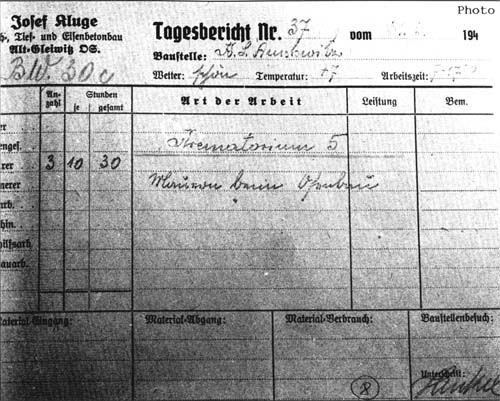 Photo
Josef Kluge
Tief- und Eisenbetonbau
Alt-Gleiwitz OS.
Tagesbericht Nr. 37 vom 194
Baustelle: K. L. Auschwitz
Wetter: schön Temperatur: +7 Arbeitszeit:
B.W. 30c
An- zahl Stunden je gesamt Art der Arbeit Leistung Bem.
Krematorium 5
3 10 30
Mauern beim Ofenbau
Material-Eingang: Material-Abgang: Material-Verbrauch: Baustellenbesuch:
Unterschrift:
8